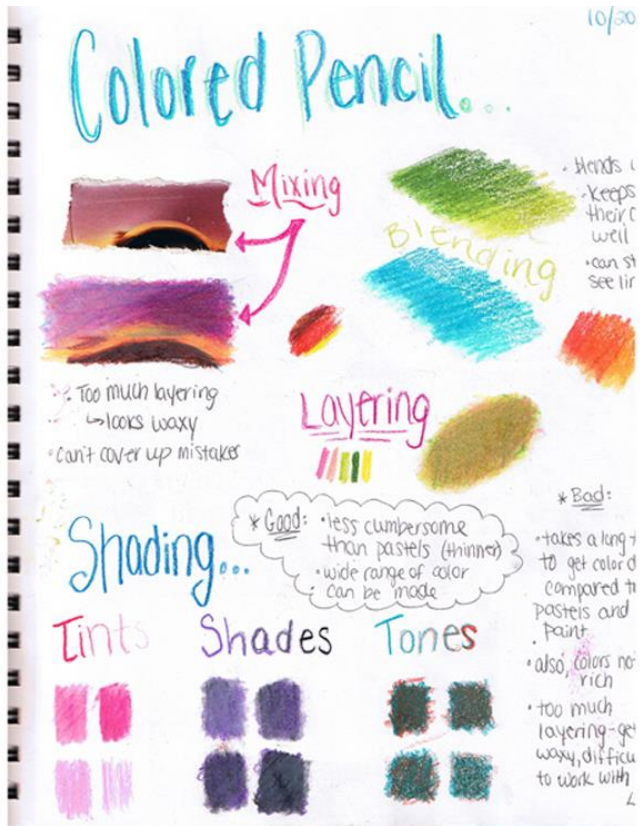 10/20
Colored Pencil...
Mixing
Blending
• blends
• keeps
their
well
• can
see
• Too much layering
↳ looks waxy
• can't cover up mistakes
Layering
Shading...
* Good: • less cumbersome
than pastels (thinner)
• wide range of color
can be made
* Bad:
• takes a long
to get color
compared
pastels and
paint
• also, colors
rich
• too much
layering-
waxy,
to work with
Tints
Shades
Tones